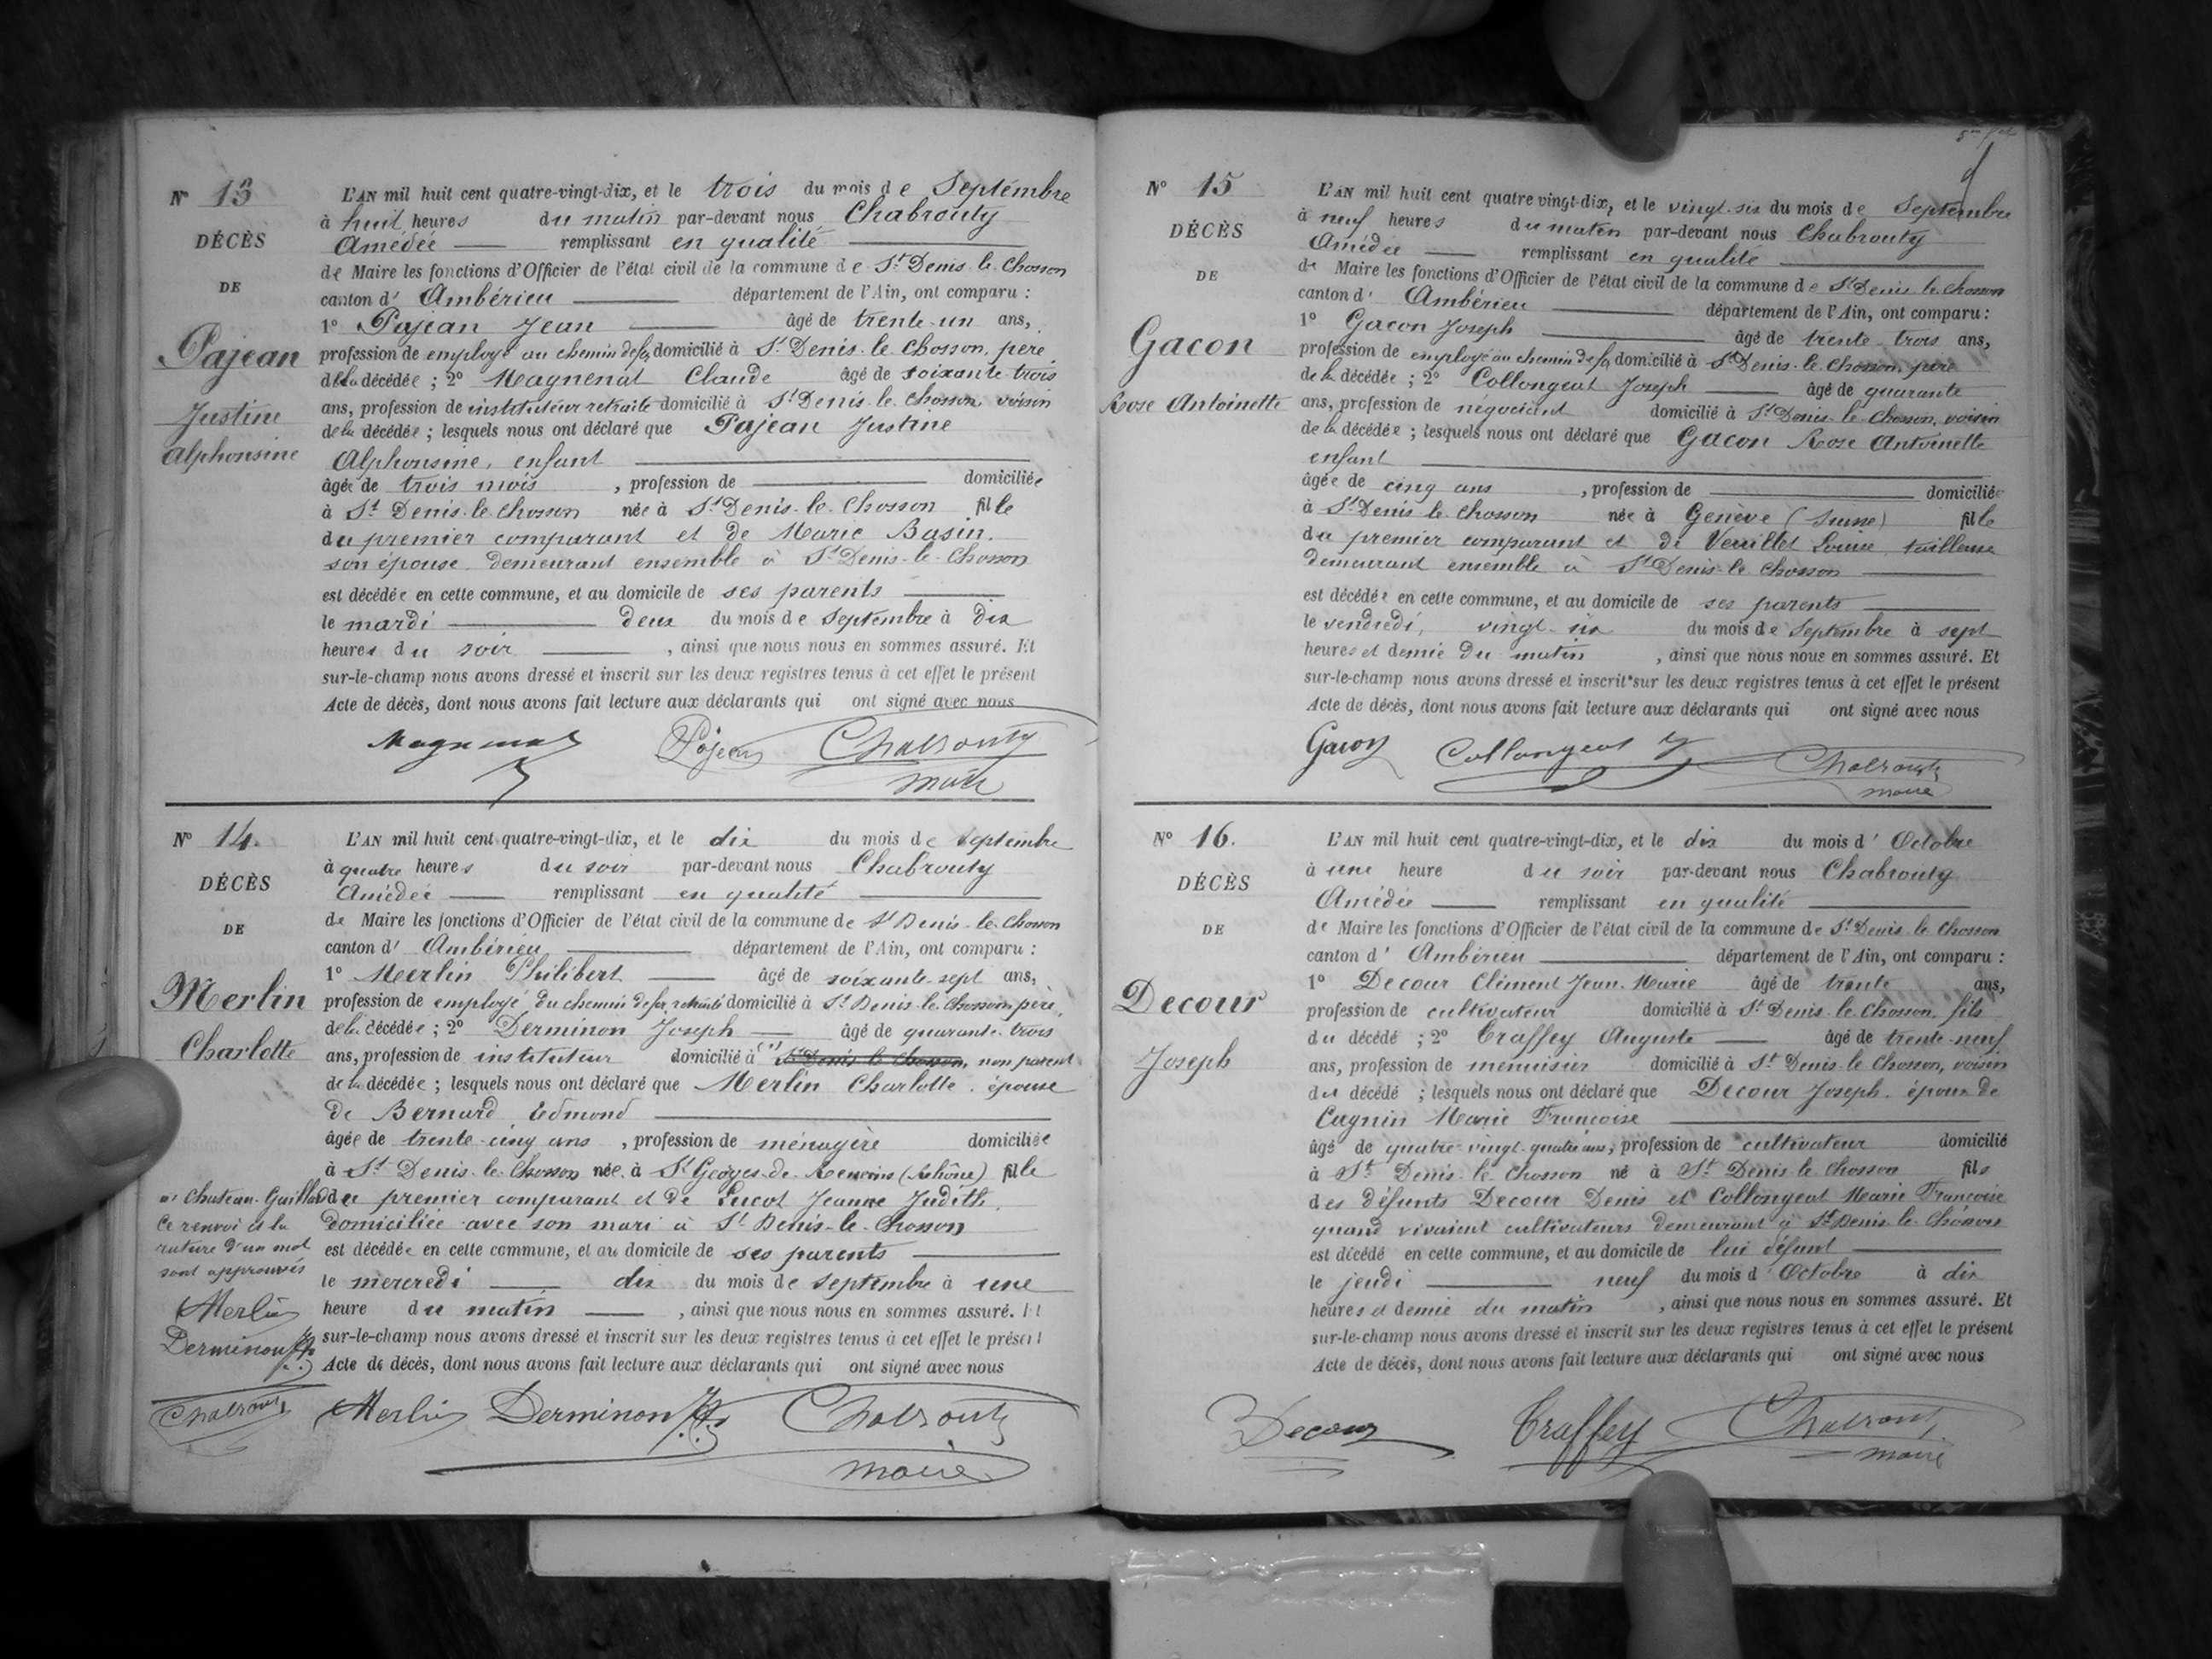 N° 13
DÉCÈS
DE
Pajean
Justine
Alphonsine
L'AN mil huit cent quatre-vingt-dix, et le trois du mois de Septembre
à huit heures du matin par-devant nous Chabrouty
Amédée remplissant en qualité
de Maire les fonctions d'Officier de l'état civil de la commune de St Denis-le-Chosson
canton d' Ambérieu département de l'Ain, ont comparu :
1° Pajean Jean âgé de trente-un ans,
profession de employé au chemin de fer domicilié à St Denis-le-Chosson, père
de la décédée ; 2° Magnenat Claude âgé de soixante-trois
ans, profession de instituteur retraité domicilié à St Denis-le-Chosson, voisin
de la décédée ; lesquels nous ont déclaré que Pajean Justine
Alphonsine, enfant
âgée de trois mois , profession de domiciliée
à St Denis-le-Chosson née à St Denis-le-Chosson fille
du premier comparant et de Marie Basin,
son épouse demeurant ensemble à St Denis-le-Chosson
est décédée en cette commune, et au domicile de ses parents
le mardi deux du mois de Septembre à dix
heures du soir , ainsi que nous nous en sommes assuré. Et
sur-le-champ nous avons dressé et inscrit sur les deux registres tenus à cet effet le présent
Acte de décès, dont nous avons fait lecture aux déclarants qui ont signé avec nous
Magnenat Pajean Chabrouty
maire
N° 14.
DÉCÈS
DE
Merlin
Charlotte
L'AN mil huit cent quatre-vingt-dix, et le dix du mois de septembre
à quatre heures du soir par-devant nous Chabrouty
Amédée remplissant en qualité
de Maire les fonctions d'Officier de l'état civil de la commune de St Denis-le-Chosson
canton d' Ambérieu département de l'Ain, ont comparu :
1° Merlin Philibert âgé de soixante-sept ans,
profession de employé du chemin de fer, retraité domicilié à St Denis-le-Chosson père,
de la décédée ; 2° Derminon Joseph âgé de quarante-trois
ans, profession de instituteur domicilié à St Denis-le-Chosson, non parent
de la décédée ; lesquels nous ont déclaré que Merlin Charlotte, épouse
de Bernard Edmond
âgée de trente-cinq ans , profession de ménagère domiciliée
à St Denis-le-Chosson née à St Georges-de-Reneins (Rhône) fille
du premier comparant et de Jeanne Judith,
domiciliée avec son mari à St Denis-le-Chosson
est décédée en cette commune, et au domicile de ses parents
le mercredi dix du mois de septembre à une
heure du matin , ainsi que nous nous en sommes assuré. Et
sur-le-champ nous avons dressé et inscrit sur les deux registres tenus à cet effet le présent
Acte de décès, dont nous avons fait lecture aux déclarants qui ont signé avec nous
Chateau-Gaillard
Ce renvoi et la
rature d'un mot
sont approuvés
Merlin
Derminon Jh
Chabrouty Merlin Derminon Jh Chabrouty
maire
N° 15
DÉCÈS
DE
Gacon
Rose Antoinette
L'AN mil huit cent quatre vingt-dix, et le vingt-six du mois de Septembre
à neuf heures du matin par-devant nous Chabrouty
Amédée remplissant en qualité
de Maire les fonctions d'Officier de l'état civil de la commune de St Denis-le-Chosson
canton d' Ambérieu département de l'Ain, ont comparu :
1° Gacon Joseph âgé de trente-trois ans,
profession de employé au chemin de fer domicilié à St Denis-le-Chosson, père
de la décédée ; 2° Collongeat Joseph âgé de quarante
ans, profession de négociant domicilié à St Denis-le-Chosson, voisin
de la décédée ; lesquels nous ont déclaré que Gacon Rose Antoinette
enfant
âgée de cinq ans , profession de domiciliée
à St Denis le Chosson née à Genève (Suisse) fille
du premier comparant et de Veuillet Louise, tailleuse
demeurant ensemble à St Denis-le-Chosson
est décédée en cette commune, et au domicile de ses parents
le vendredi, vingt-six du mois de Septembre à sept
heures et demie du matin , ainsi que nous nous en sommes assuré. Et
sur-le-champ nous avons dressé et inscrit sur les deux registres tenus à cet effet le présent
Acte de décès, dont nous avons fait lecture aux déclarants qui ont signé avec nous
Gacon Collongeat Chabrouty
maire
N° 16.
DÉCÈS
DE
Decour
Joseph
L'AN mil huit cent quatre-vingt-dix, et le dix du mois d' Octobre
à une heure du soir par-devant nous Chabrouty
Amédée remplissant en qualité
de Maire les fonctions d'Officier de l'état civil de la commune de St Denis-le-Chosson
canton d' Ambérieu département de l'Ain, ont comparu :
1° Decour Clément Jean-Marie âgé de trente ans,
profession de cultivateur domicilié à St Denis-le-Chosson, fils
du décédé ; 2° Traffey Auguste âgé de trente-neuf
ans, profession de menuisier domicilié à St Denis-le-Chosson, voisin
du décédé ; lesquels nous ont déclaré que Decour Joseph, époux de
Cagnin Marie Françoise
âgé de quatre-vingt-quatre ans, profession de cultivateur domicilié
à St Denis-le-Chosson né à St Denis-le-Chosson fils
des défunts Decour Denis et Collongeat Marie Françoise
quand vivaient cultivateurs demeurant à St Denis-le-Chosson
est décédé en cette commune, et au domicile de lui défunt
le jeudi neuf du mois d' Octobre à dix
heures et demie du matin , ainsi que nous nous en sommes assuré. Et
sur-le-champ nous avons dressé et inscrit sur les deux registres tenus à cet effet le présent
Acte de décès, dont nous avons fait lecture aux déclarants qui ont signé avec nous
Decour Traffey Chabrouty
maire